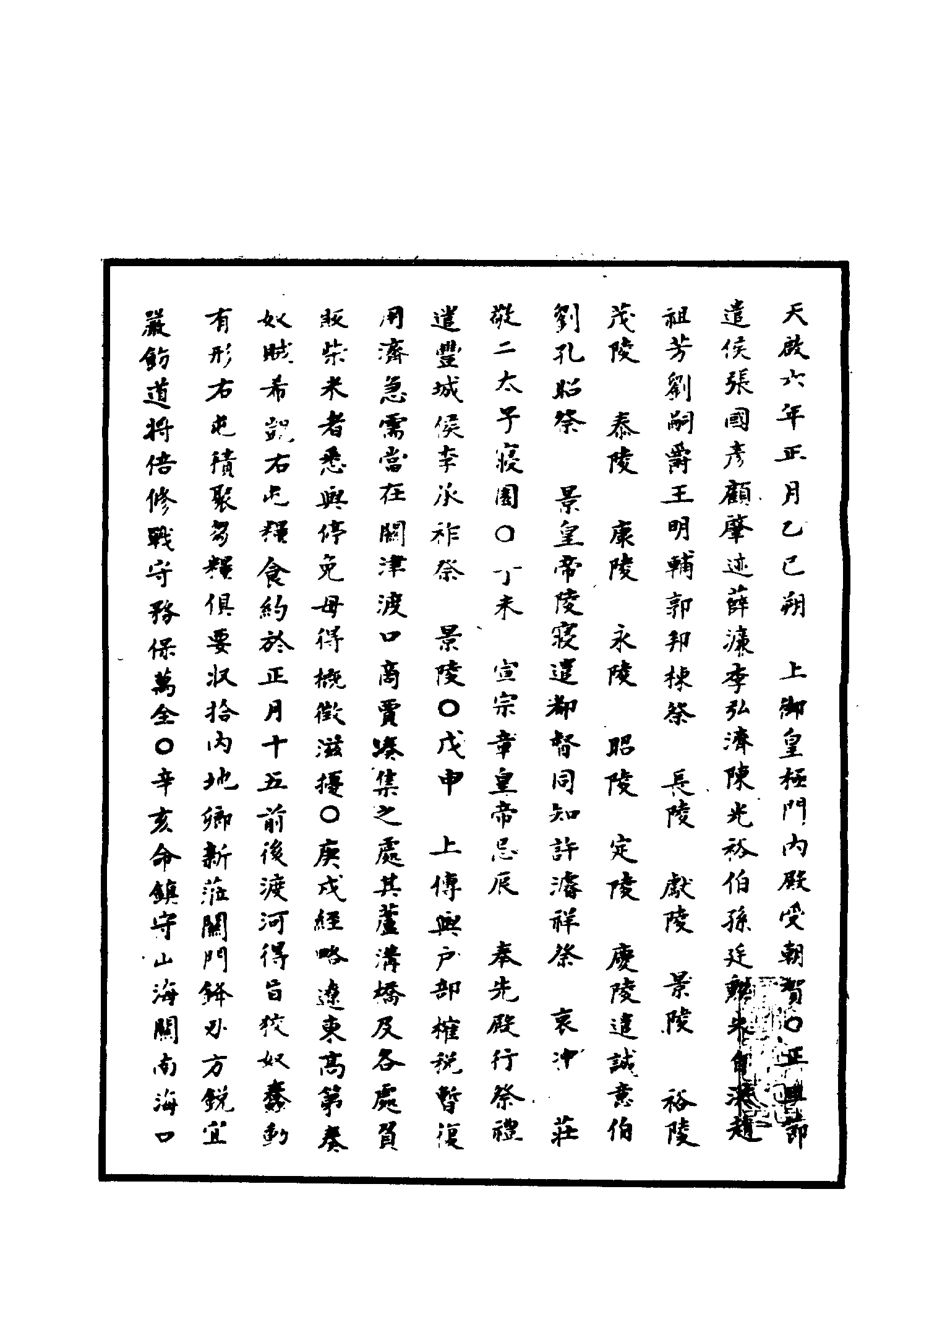 天啟六年正月乙巳朔　上御皇極門內殿受朝賀〇正旦節
遣侯張國彥顧肇迹薛濂李弘濟陳光裕伯孫廷勲趙
祖芳劉嗣爵王明輔郭邦棟祭　長陵　獻陵　景陵　裕陵
茂陵　泰陵　康陵　永陵　昭陵　定陵　慶陵遣誠意伯
劉孔昭祭　景皇帝陵寢遣都督同知許濬祥祭　哀沖　莊
敬二太子寢園〇丁未　宣宗章皇帝忌辰　奉先殿行祭禮
遣豐城侯李承祚祭　景陵〇戊申　上傳與戶部榷稅暫復
用濟急需當在關津渡口商賈湊集之處其蘆溝橋及各處貿
販柴米者悉與停免毋得概徵滋擾〇庚戌經略遼東高第奏
奴賊希覬右屯糧食約於正月十五前後渡河得旨狡奴蠢動
有形右屯積聚多糧俱要収拾內地鄉新莊關門鋒刃方銳宜
嚴飭道將倍修戰守務保萬全〇辛亥命鎮守山海關南海口